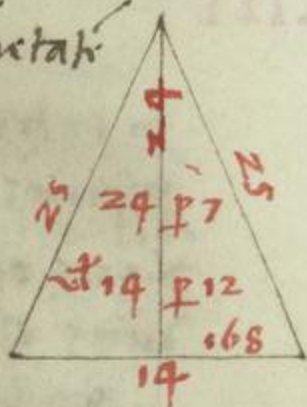 24
25
25
24 ꝑ 7
14 ꝑ 12
168
14